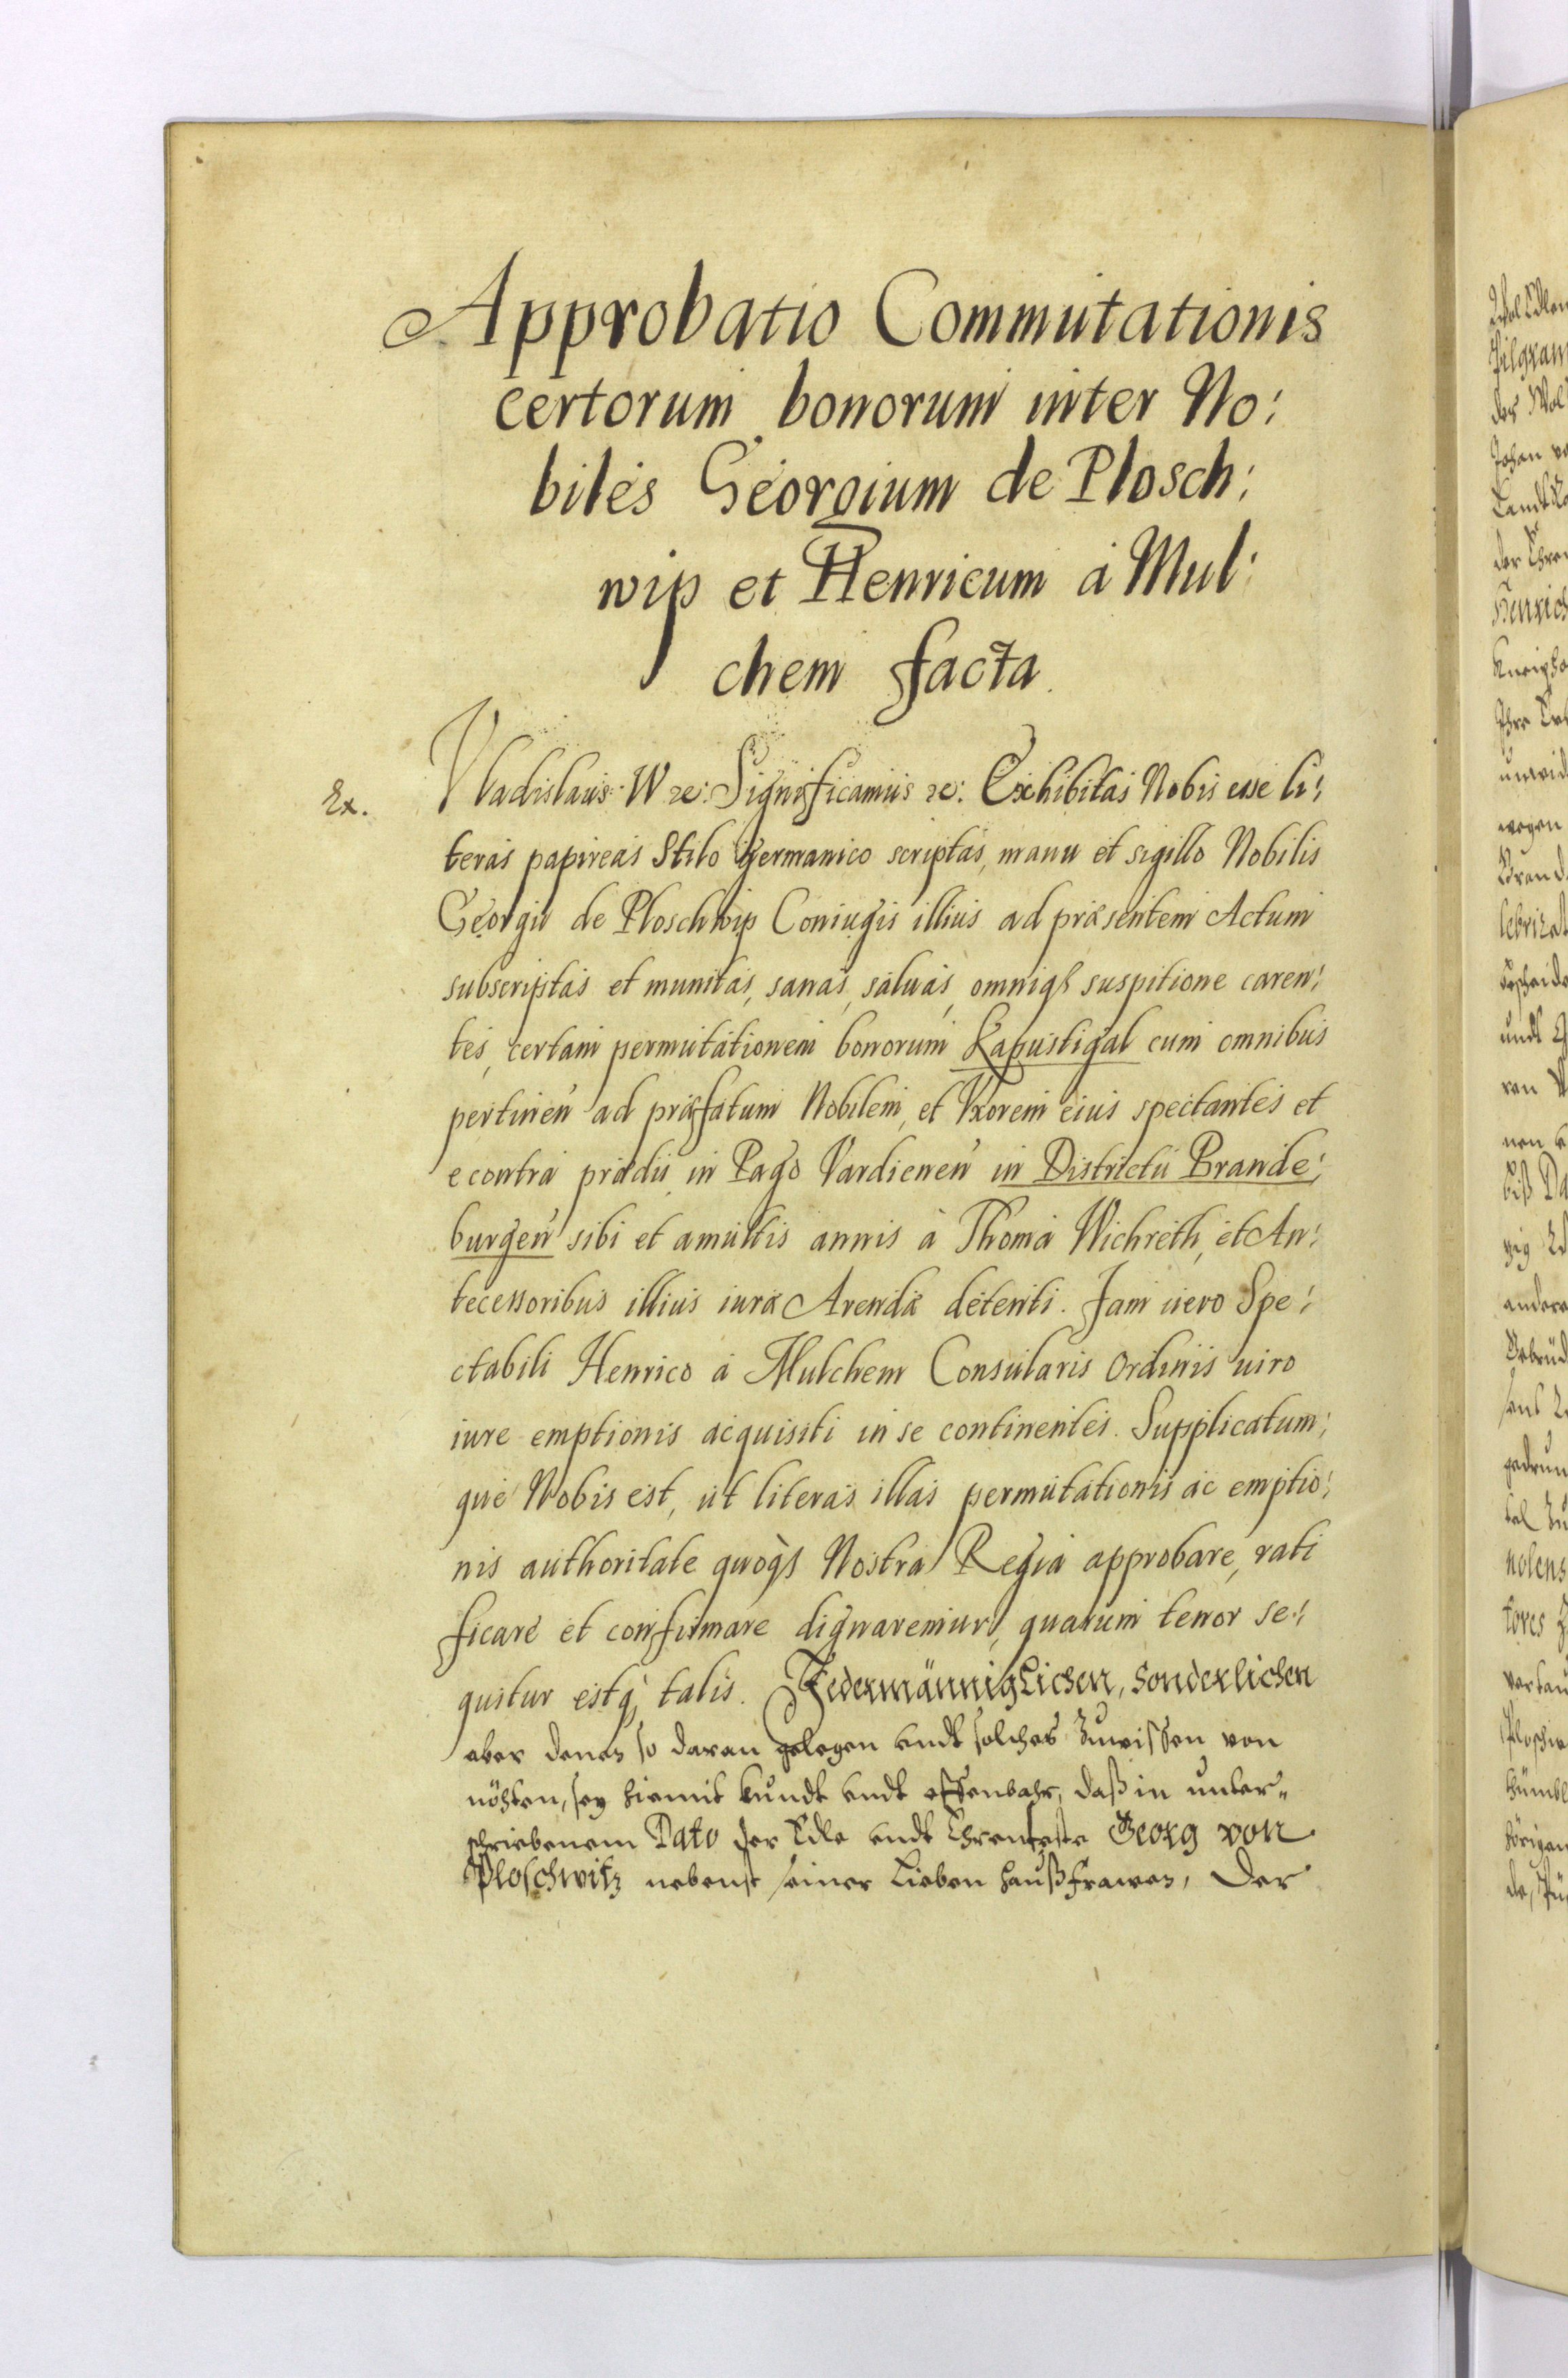 Approbatio Commutationis
certorum bonorum inter No:
biles Georgium de Plosch:
wip et Henricum á Mul:
chem facta.
Ex.
Vladislaus W ꝛc: Significamus ꝛc: Exhibitas Nobis esse li:
teras papireas Stilo Germanico scriptas, manu et sigillo Nobilis
Georgii de Ploschwip Coniugis illius ad præsentem Actum
subscriptas et munitas, sanas, saluas, omniqꝫ suspitione caren:
tes, certam permutationem bonorum Kapustigal cum omnibus
pertinen ad præfatum Nobilem, et Vxorem eius spectantes et
econtra prædii in Pago Vardienen in Districtu Brande:
burgen sibi et a multis annis à Thoma Wichreth, et An:
tecessoribus illius iuræ Arendæ detenti. Jam uero Spe:
ctabili Henrico á Mulchem Consularis Ordinis uiro
iure emptionis acquisiti in se continentes. Supplicatum:
que Nobis est, ut literas illas permutationis ac emptio:
nis authoritate quoqꝫ Nostra Regia approbare, rati
ficare et confirmare dignaremur, quarum tenor se:
quitur estqꝫ talis. Jedermänniglichen, Sonderlichen
aber denen so daran gelegen undt solches Zuwissen von
nöhten, sey hiemit kundt undt offenbahr, daß in unter„
schriebenem Dato der Edle undt Ehrenfeste Georg von
Ploschwitz nebenst seiner Lieben Haußfrawen, Der